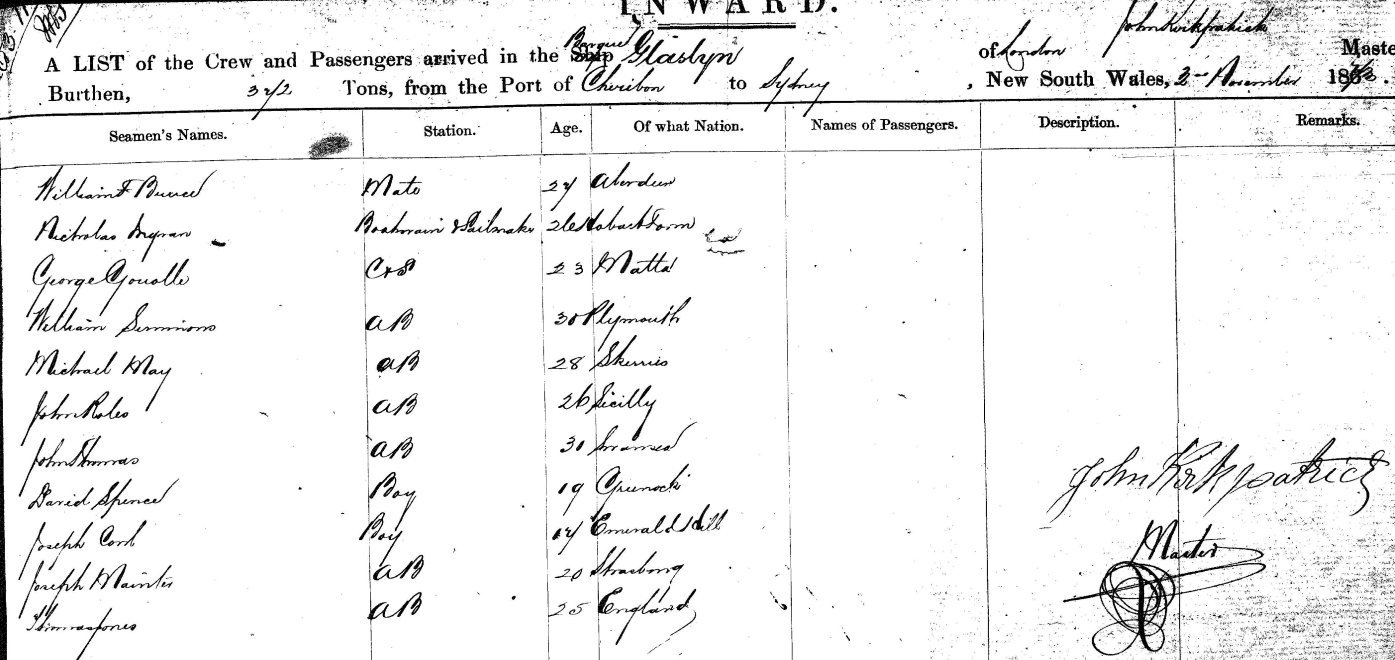 INWARD.
A LIST of the Crew and Passengers arrived in the Ship Barque Glaslyn of London John Kirkpatrick Maste
Burthen, 342 Tons, from the Port of Cheribon to Sydney, New South Wales, 2 November 187
Seamen's Names. Station. Age. Of what Nation. Names of Passengers. Description. Remarks.
William Mate 24 Aberdeen
Nicholas Boatswain & Sailmaker 26 Hobart Town
George C & S 23 Malta
William Simmions AB 30 Plymouth
Michael May AB 28 Skerries
John Roles AB 26 Sicilly
John Thomas AB 30 Swansea
David Spence Boy 19 Greenock
Joseph Boy Emerald Hill
Joseph AB 20 Strasbourg
Thomas Jones AB 25 England
John Kirkpatrick
Master